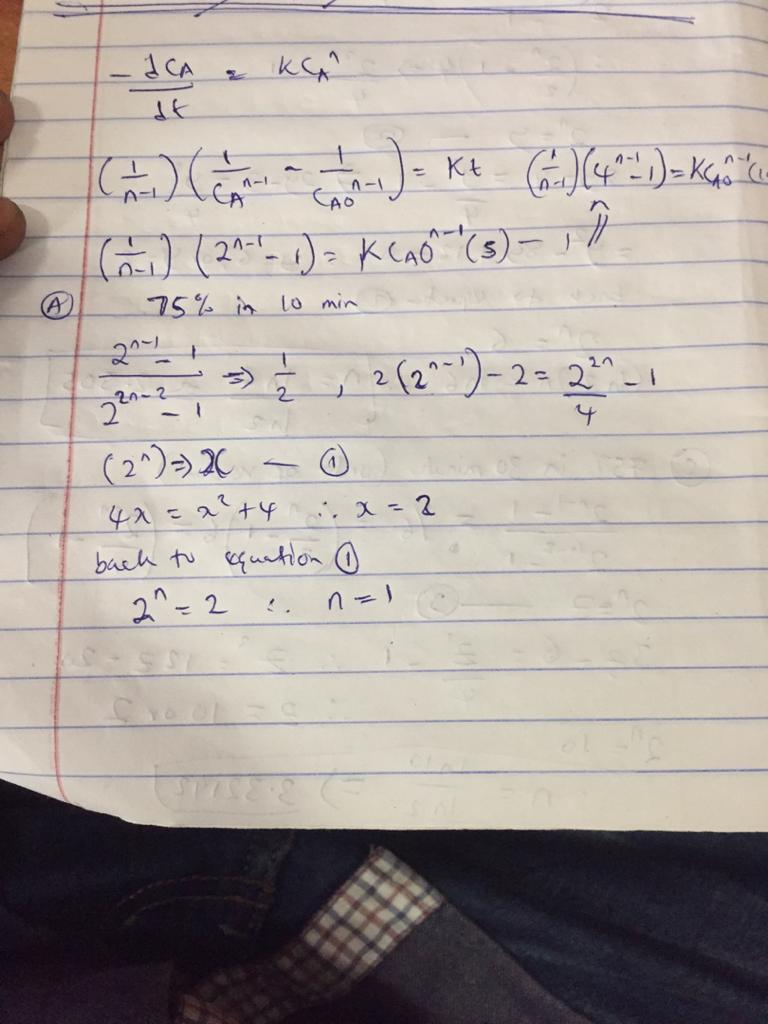 - dCA/dt = KCA^n
(1/n-1)(1/CA^n-1 - 1/CA0^n-1) = Kt (1/n-1)(4^n-1 - 1) = KCA0^n-1(1
(1/n-1)(2^n-1 - 1) = KCA0^n-1(5) - 1
Ⓐ 75% in 10 min
2^n-1 - 1/2^2n-2 - 1 ⇒ 1/2 , 2(2^n-1) - 2 = 2^2n/4 - 1
(2^n) ⇒ x — ①
4x = x² + 4 ∴ x = 2
back to equation ①
2^n = 2 ∴ n = 1